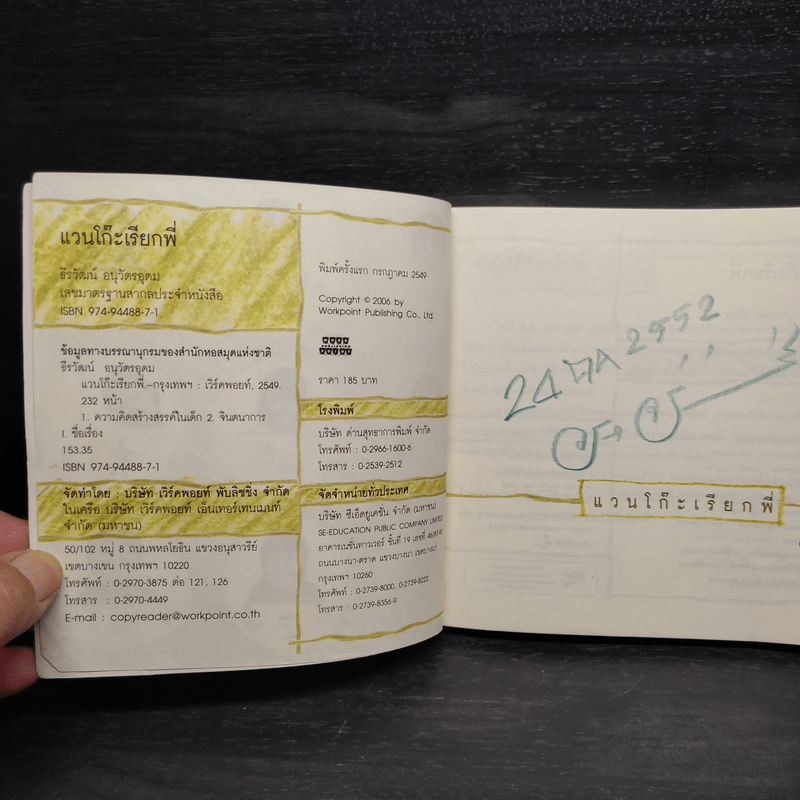 แวนโก๊ะเรียกพี่
ธีรวัฒน์ อนุวัตรอุดม
เลขมาตรฐานสากลประจำหนังสือ
ISBN 974-94488-7-1
ข้อมูลทางบรรณานุกรมของสำนักหอสมุดแห่งชาติ
ธีรวัฒน์ อนุวัตรอุดม
แวนโก๊ะเรียกพี่.--กรุงเทพฯ : เวิร์คพอยท์, 2549.
232 หน้า
1. ความคิดสร้างสรรค์ในเด็ก 2. จินตนาการ
I. ชื่อเรื่อง
153.35
ISBN 974-94488-7-1
จัดทำโดย : บริษัท เวิร์คพอยท์ พับลิชชิ่ง จำกัด
ในเครือ บริษัท เวิร์คพอยท์ เอ็นเทอร์เทนเมนท์
จำกัด (มหาชน)
50/102 หมู่ 8 ถนนพหลโยธิน แขวงอนุสาวรีย์
เขตบางเขน กรุงเทพฯ 10220
โทรศัพท์ : 0-2970-3875 ต่อ 121, 126
โทรสาร : 0-2970-4449
E-mail : copyreader@workpoint.co.th
พิมพ์ครั้งแรก กรกฎาคม 2549
Copyright © 2006 by
Workpoint Publishing Co., Ltd.
ราคา 185 บาท
โรงพิมพ์
บริษัท ด่านสุทธาการพิมพ์ จำกัด
โทรศัพท์ : 0-2966-1600-6
โทรสาร : 0-2539-2512
จัดจำหน่ายทั่วประเทศ
บริษัท ซีเอ็ดยูเคชั่น จำกัด (มหาชน)
SE-EDUCATION PUBLIC COMPANY LIMITED
อาคารเนชั่นทาวเวอร์ ชั้นที่ 19 เลขที่ 46/87-90
ถนนบางนา-ตราด แขวงบางนา เขตบางนา
กรุงเทพฯ 10260
โทรศัพท์ : 0-2739-8000, 0-2739-8222
โทรสาร : 0-2739-8356-9
24 2552
แวนโก๊ะเรียกพี่